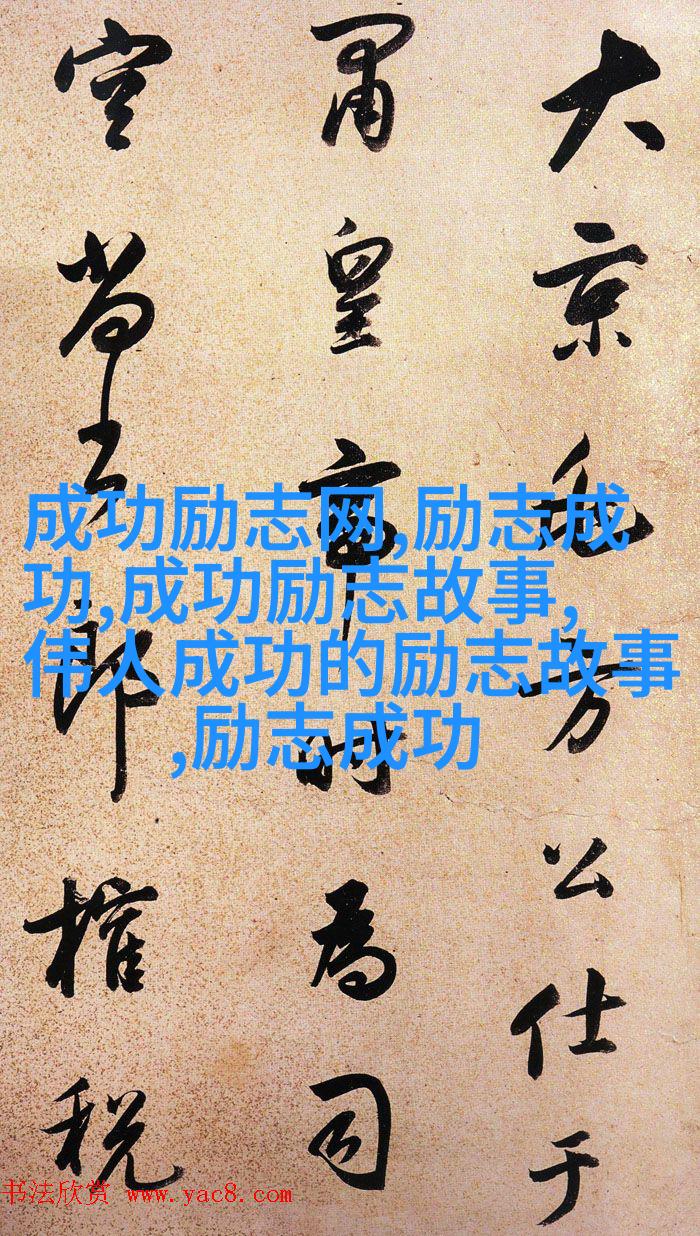 大京兆方公仕于
肅皇帝時為司
空尚書郎榷税
成功励志网,励志成
功,成功励志故事,
伟人成功的励志故事
,励志成功
书法欣赏 www.yac8.com